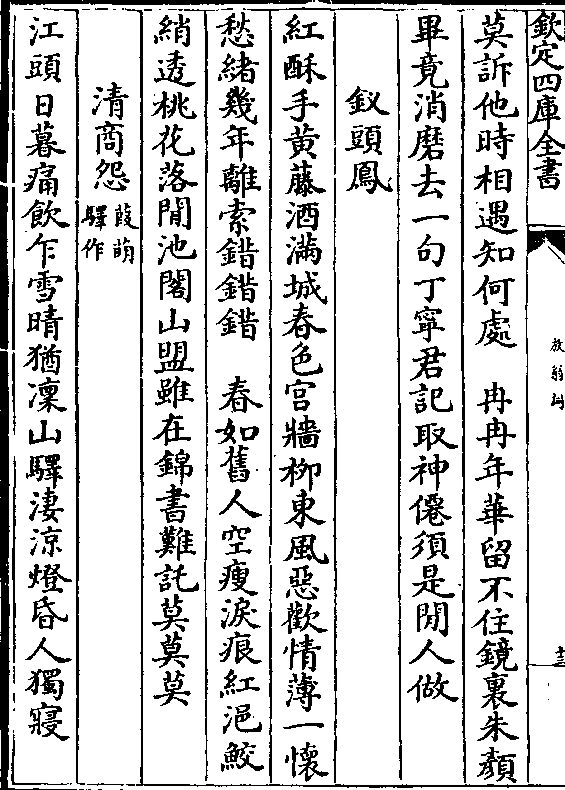 欽定四庫全書
莫訴他時相遇知何處　冉冉年華留不住鏡裏朱顏
畢竟消磨去一句丁寧君記取神僊須是閒人做
釵頭鳳
紅酥手黄藤酒滿城春色宫牆栁東風惡歡情薄一懷
愁緒幾年離索錯錯錯　春如舊人空瘦淚痕紅浥鮫
綃透桃花落閒池閣山盟雖在錦書難託莫莫莫
清商怨葭萌驛作
江頭日暮痛飲乍雪晴猶凜山驛淒涼燈昏人獨寢